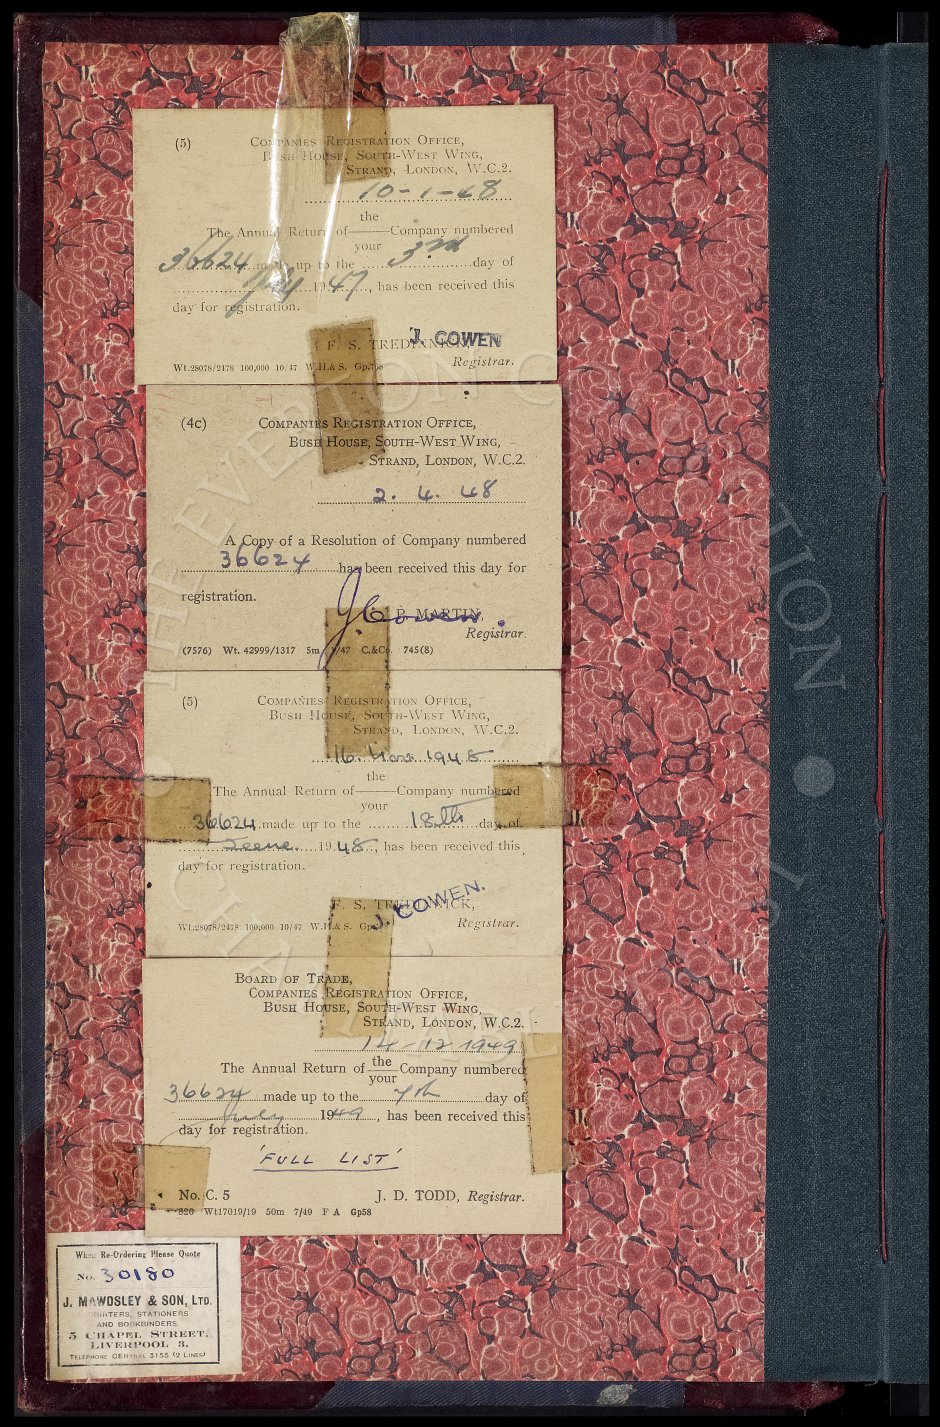 (5) COMPANIES REGISTRATION OFFICE,
BUSH HOUSE, SOUTH-WEST WING,
STRAND, LONDON, W.C.2.
10-1-48
the
The Annual Return of——Company numbered
your
36624 made up to the 3rd day of
July 1947, has been received this
day for registration.
F. S. TREDINNICK,
J. COWEN
Registrar.
Wt.28078/2478 100,000 10/47 W.H.& S. Gp.
(4c) COMPANIES REGISTRATION OFFICE,
BUSH HOUSE, SOUTH-WEST WING,
STRAND, LONDON, W.C.2.
2. 4. 48
A Copy of a Resolution of Company numbered
36624 has been received this day for
registration.
J Cowen.
P. MARTIN,
Registrar.
(7576) Wt. 42999/1317 5m /47 C.&Co. 745(8)
(5) COMPANIES REGISTRATION OFFICE,
BUSH HOUSE, SOUTH-WEST WING,
STRAND, LONDON, W.C.2.
16. Nov. 1948
the
The Annual Return of——Company numbered
your
36624 made up to the 18th day of
19 48, has been received this
day for registration.
F. S. TREDINNICK,
J. COWEN.
Registrar.
Wt.28078/2478 100,000 10/47 W.H.& S.
BOARD OF TRADE,
COMPANIES REGISTRATION OFFICE,
BUSH HOUSE, SOUTH-WEST WING,
STRAND, LONDON, W.C.2.
14-12-1949
the
The Annual Return of——Company numbered
your
36624 made up to the 7th day of
July 1949, has been received this
day for registration.
'FULL LIST'
No. C. 5 J. D. TODD, Registrar.
820 Wt17019/19 50m 7/49 F A Gp58
When Re-Ordering Please Quote
No. 30180
J. MAWDSLEY & SON, LTD.
PRINTERS, STATIONERS
AND BOOKBINDERS
5 CHAPEL STREET,
LIVERPOOL 3.
TELEPHONE CENTRAL 3155 (2 LINES)
THE EVERTON COLLECTION
CHARITABLE TRUST